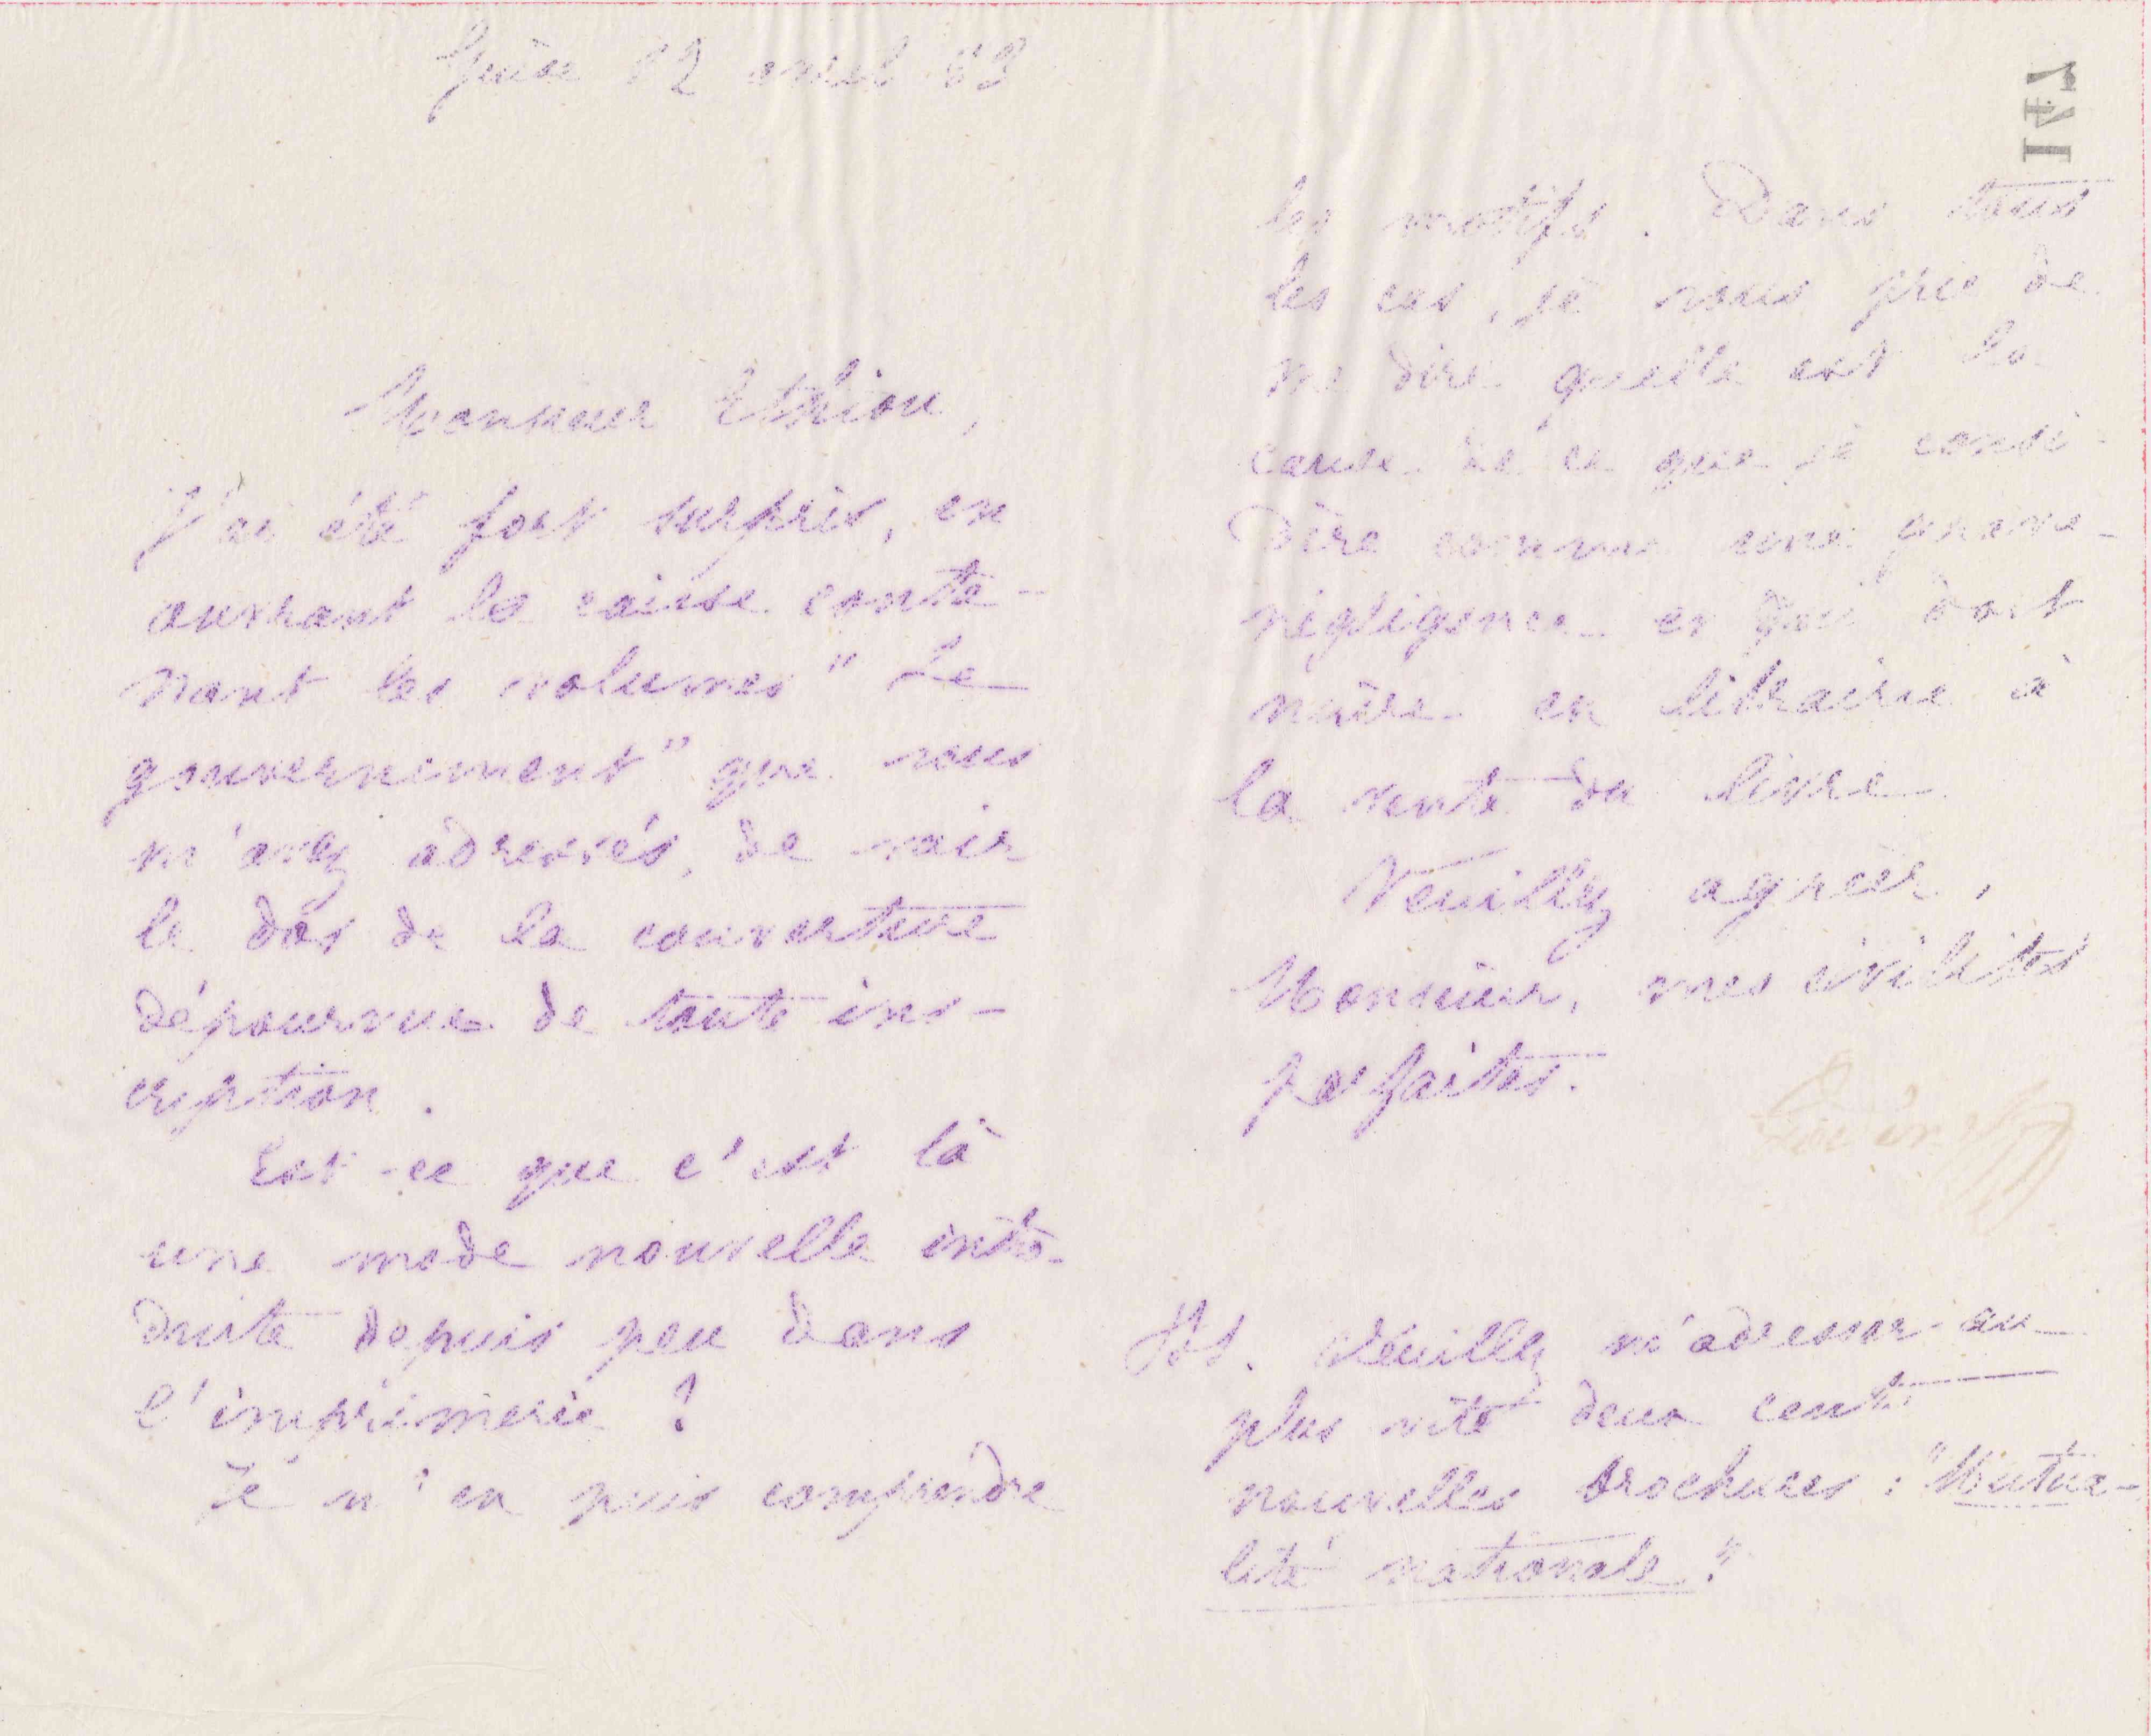 Guise 12 avril 83
Monsieur Ethiou,
J'ai été fort surpris, en
ouvrant la caisse conte-
nant les volumes " Le
gouvernement " que vous
m'avez adressés, de voir
le dos de la couverture
dépourvue de toute ins-
cription.
Est-ce que c'est là
une mode nouvelle intro-
duite depuis peu dans
l'imprimerie ?
Je n'en puis comprendre
les motifs. Dans tous
les cas, je vous prie de
me dire quelle est la
cause de ce que je consi-
dère comme une grave
négligence et qui doit
nuire en librairie à
la vente du livre
Veuillez agréer,
Monsieur, mes civilités
parfaites.
Godin
141
Ps. Veuillez m'adresser au
plus vite deux cents
nouvelles brochures : "Mutua-
lité nationale".